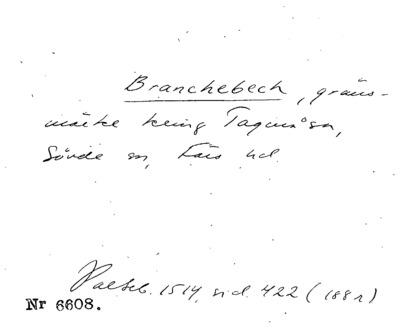 Branchebech, gräns-
märke kring Tagmosen,
Sövde sn, Färs hd.
Palteb. 1514, sid. 422 (188r)
Nr 6608.